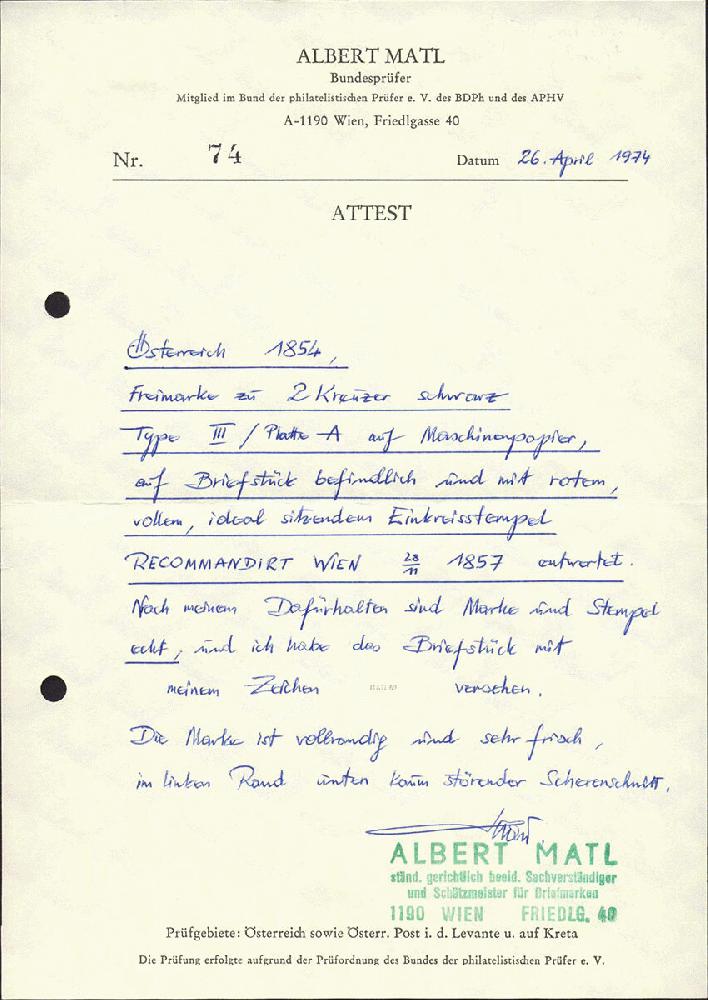 ALBERT MATL
Bundesprüfer
Mitglied im Bund der philatelistischen Prüfer e. V. des BDPh und des APHV
A-1190 Wien, Friedlgasse 40
Nr. 74 Datum 26. April 1974
ATTEST
Österreich 1854,
Freimarke zu 2 Kreuzer schwarz
Type III / Platte A auf Maschinenpapier,
auf Briefstück befindlich und mit rotem,
vollem, ideal sitzendem Einkreisstempel
RECOMMANDIRT WIEN 28/11 1857 entwertet.
Nach meinem Dafürhalten sind Marke und Stempel
echt, und ich habe das Briefstück mit
meinem Zeichen versehen.
Die Marke ist vollrandig und sehr frisch,
im linken Rand unten kaum störender Scherenschnitt.
ALBERT MATL
ständ. gerichtlich beeid. Sachverständiger
und Schätzmeister für Briefmarken
1190 WIEN FRIEDLG. 40
Prüfgebiete: Österreich sowie Österr. Post i. d. Levante u. auf Kreta
Die Prüfung erfolgte aufgrund der Prüfordnung des Bundes der philatelistischen Prüfer e. V.